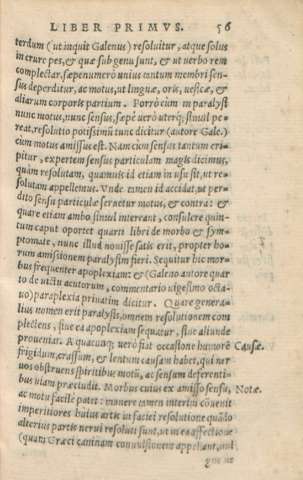 LIBER PRIMVS. 56
terdum (ut inquit Galenus) resoluitur, atque solus
in crure pes, & quæ sub genu sunt, & ut uerbo rem
complectar, sæpenumerò unius tantum membri sen-
sus deperditur, ac motus, ut linguæ, oris, uesicæ, &
aliarum corporis partium. Porrò cùm in paralysi
nunc motus, nunc sensus, sæpè uerò uterq; simul pe-
reat, resolutio potissimũ tunc dicitur (autore Gale.)
cùm motus amissus est. Nam cùm sensus tantum eri-
pitur, expertem sensus particulam magis dicimus,
quàm resolutam, quamuis id etiam in usu sit, ut re-
solutam appellemus. Vnde tamen id accidat, ut per-
dito sensu particulæ seruetur motus, & contrà: &
quare etiam ambo simul intereant, consulere quin-
tum caput oportet quarti libri de morbo & sym-
ptomate, nunc illud nouisse satis erit, propter ho-
rum amissionem paralysim fieri. Sequitur hic mor-
bus frequenter apoplexiam: & (Galeno autore quar
to de uictu acutorum, commentario uigesimo octa-
uo) paraplexia priuatim dicitur. Quare genera-
lius nomen erit paralysis, omnem resolutionem com
plectens, siue ea apoplexiam sequatur, siue aliunde
proueniat. A quacunq; uerò fiat occasione humorẽ Causæ.
frigidum, crassum, & lentum causam habet, qui ner
uos obstruens spiritibus motũ, ac sensum deferenti-
bus uiam præcludit. Morbus cuius ex amisso sensu, Notæ.
ac motu facilè patet: uerum tamen interim
imperitiores huius artis in faciei resolutione quãdo
alterius partis nerui resoluti sunt, ut in ea affectione
(quam Græci caninam conuulsionem appellant,